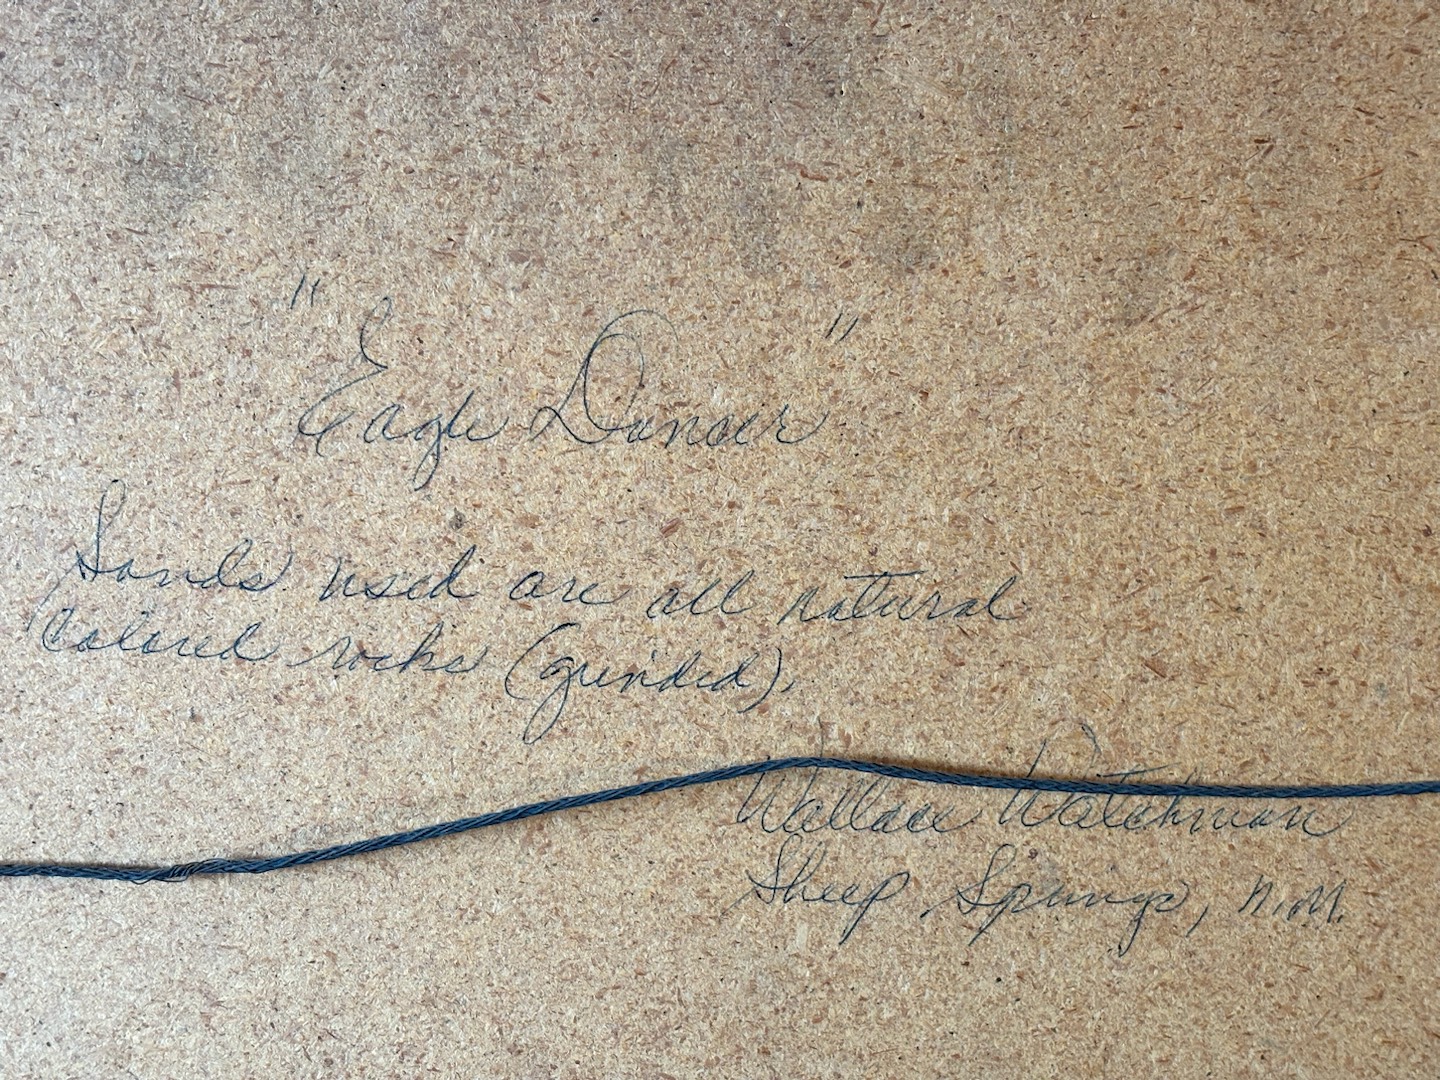 "Eagle Dancer"
Sands used are all natural
colored rocks (grinded).
Wallace Watchman
Sheep Springs, N.M.